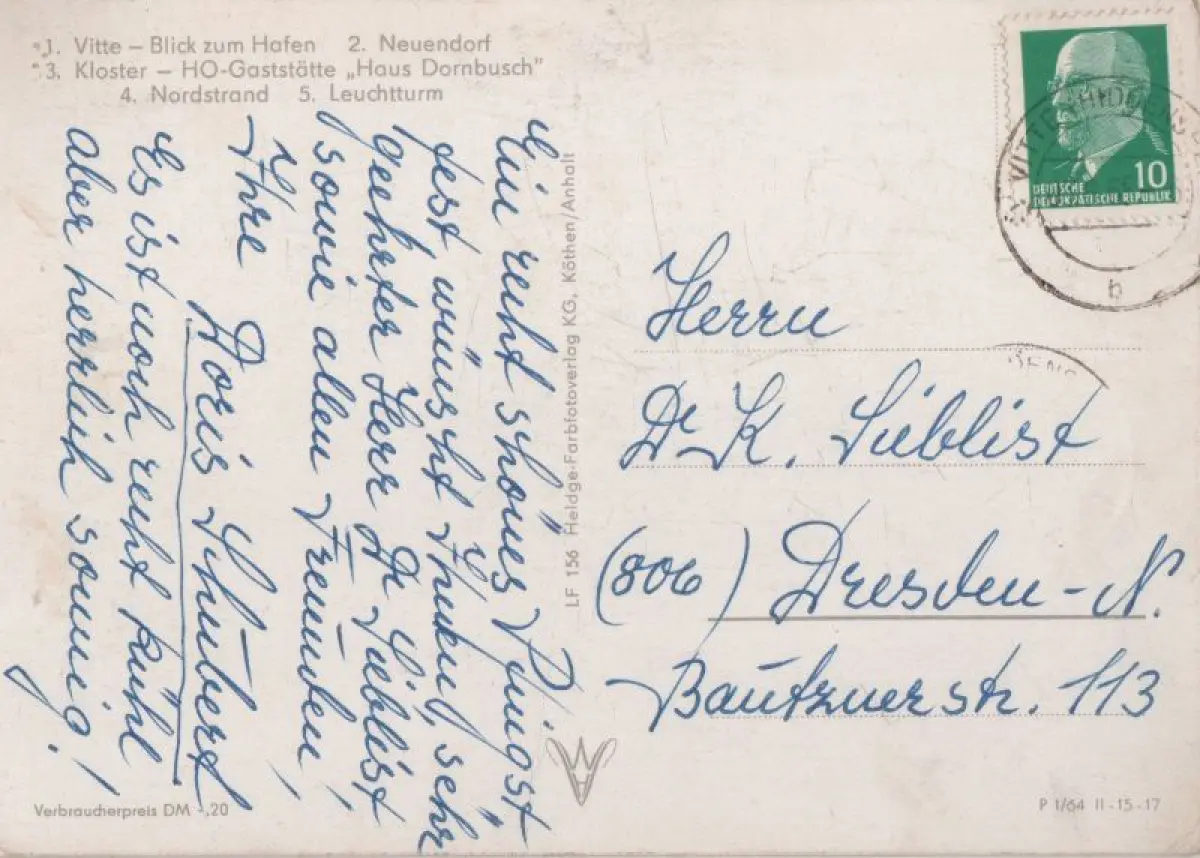 1. Vitte – Blick zum Hafen 2. Neuendorf
3. Kloster – HO-Gaststätte „Haus Dornbusch"
4. Nordstrand 5. Leuchtturm
Ein recht schönes Pfingst-
fest wünscht Ihnen, sehr
geehrter Herr Dr Lieblist
sowie allen Freunden,
Ihre
Doris Schubert
Es ist noch recht kühl
aber herrlich sonnig!
LF 156 Heldge-Farbfotoverlag KG, Köthen/Anhalt
10
DEUTSCHE
DEMOKRATISCHE REPUBLIK
VITTE
b
Herrn
Dr K. Lieblist
(806) Dresden-N.
Bautznerstr. 113
Verbraucherpreis DM -,20
P 1/64 II-15-17